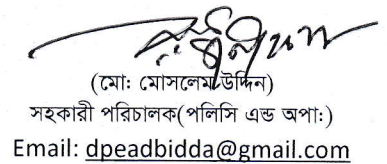 (মো: মোসলেম উদ্দিন)
সহকারী পরিচালক(পলিসি এন্ড অপা:)
Email: dpeadbidda@gmail.com